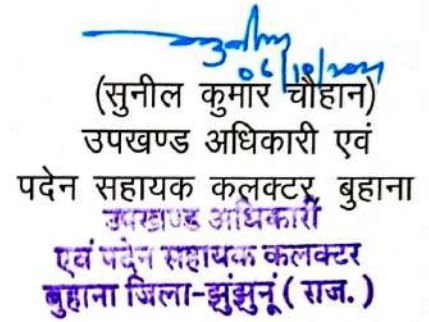 06/10/2021
(सुनील कुमार चौहान)
उपखण्ड अधिकारी एवं
पदेन सहायक कलक्टर, बुहाना
उपखण्ड अधिकारी
एवं पदेन सहायक कलक्टर
बुहाना जिला-झुंझुनूं ( राज. )